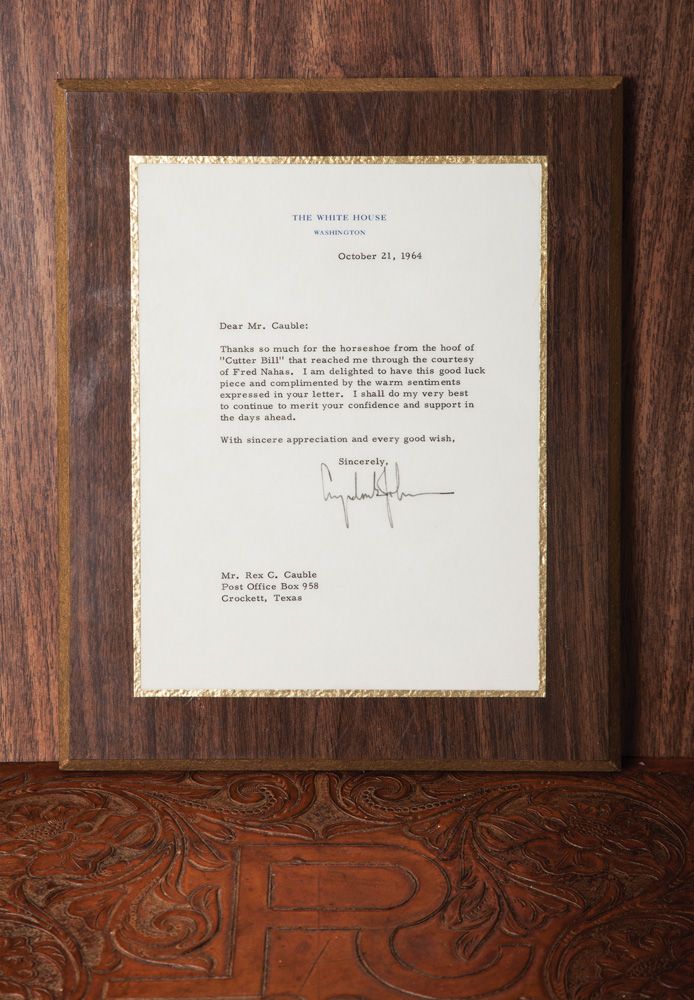 THE WHITE HOUSE
WASHINGTON
October 21, 1964
Dear Mr. Cauble:
Thanks so much for the horseshoe from the hoof of
"Cutter Bill" that reached me through the courtesy
of Fred Nahas. I am delighted to have this good luck
piece and complimented by the warm sentiments
expressed in your letter. I shall do my very best
to continue to merit your confidence and support in
the days ahead.
With sincere appreciation and every good wish,
Sincerely,
Lyndon B. Johnson
Mr. Rex C. Cauble
Post Office Box 958
Crockett, Texas
RC